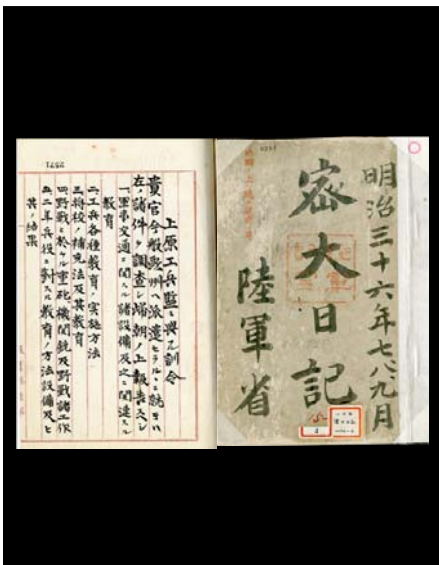 明治三十六年七八九月
密大日記
陸軍省
上原工兵監ニ與フル訓令
貴官今般歐州ヘ派遣セラルヽニ就テハ
左ノ諸件ヲ調査シ歸朝ノ上報告スヘシ
一、軍事交通ニ関スル諸設備及之ニ関連スル
教育
二、工兵各種教育ノ実施方法
三、将校ノ補充法及其教育
四、野戦ニ於ケル軍死機関銃及野戦諸工作
五、二年兵役ニ對スル教育ノ方法設備及ヒ
其ノ結果